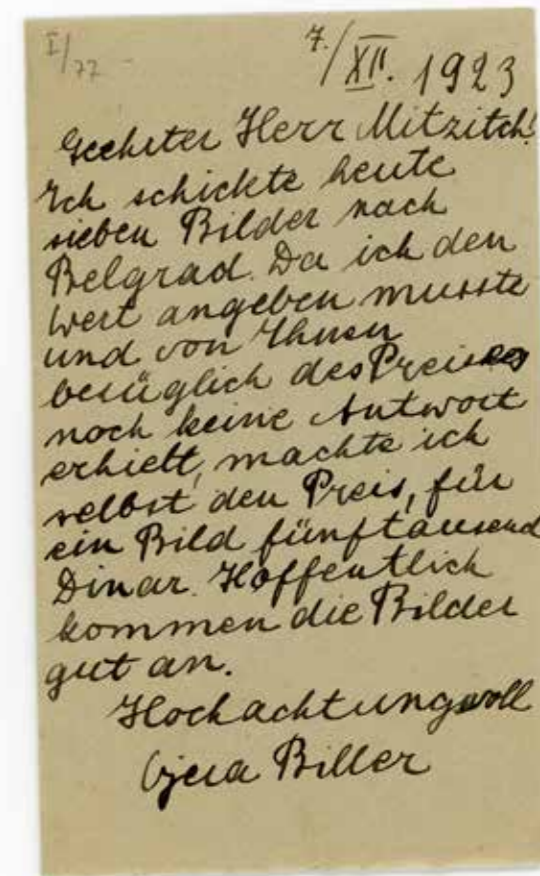 I/77 -
7./XII. 1923
Geehrter Herr Mitzitch!
Ich schickte heute
sieben Bilder nach
Belgrad. Da ich den
Wert angeben musste
und von Ihnen
bezüglich des Preises
noch keine Antwort
erhielt, machte ich
selbst den Preis, für
ein Bild fünftausend
Dinar. Hoffentlich
kommen die Bilder
gut an.
Hochachtungsvoll
Vjera Biller